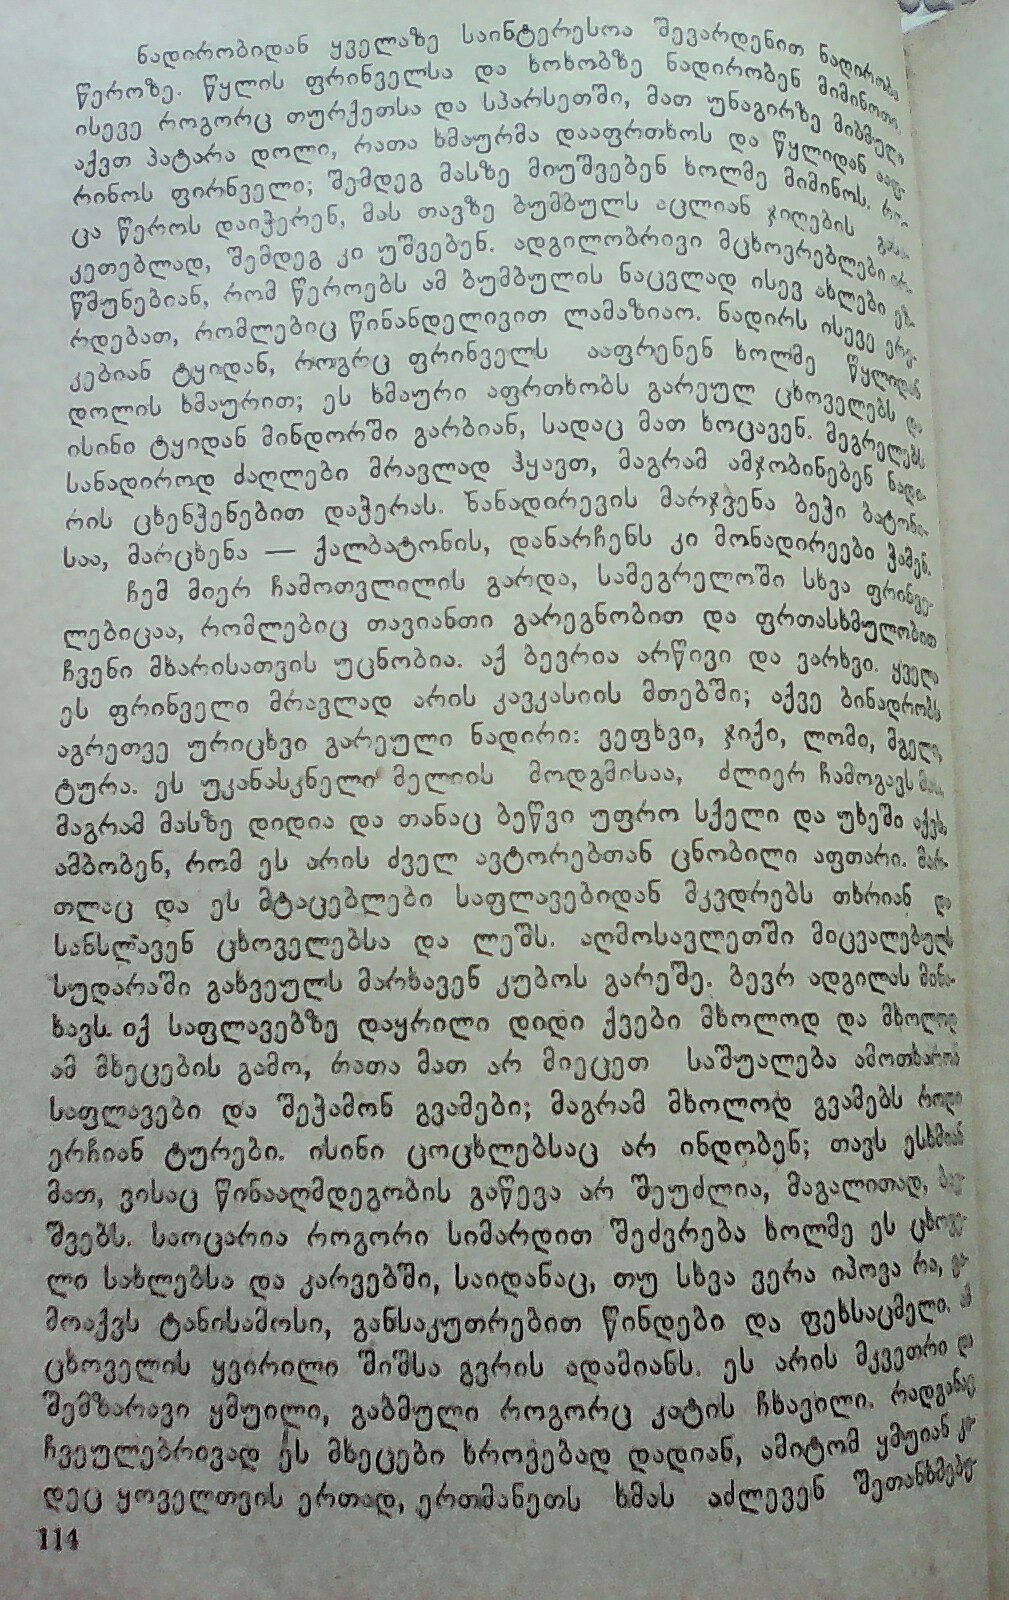 ნადირობიდან ყველაზე საინტერესოა შევარდენით ნადირობა
წეროზე. წყლის ფრინველსა და ხოხობზე ნადირობენ მიმინოთი.
ისევე როგორც თურქეთსა და სპარსეთში, მათ უნაგირზე მიბმული
აქვთ პატარა დოლი, რათა ხმაურმა დააფრთხოს და წყლიდან ააფ-
რინოს ფირნველი; შემდეგ მასზე მიუშვებენ ხოლმე მიმინოს. რო-
ცა წეროს დაიჭერენ, მას თავზე ბუმბულს აცლიან ჯიღების
კეთებლად, შემდეგ კი უშვებენ. ადგილობრივი მცხოვრებლები
წმუნებიან, რომ წეროებს ამ ბუმბულის ნაცვლად ისევ ახლები
რდებათ, რომლებიც წინანდელივით ლამაზიაო. ნადირს ისევე
კებიან ტყიდან, როგრც ფრინველს ააფრენენ ხოლმე წყლიდან
დოლის ხმაურით; ეს ხმაური აფრთხობს გარეულ ცხოველებს და
ისინი ტყიდან მინდორში გარბიან, სადაც მათ ხოცავენ. მეგრელებს
სანადიროდ ძაღლები მრავლად ჰყავთ, მაგრამ ამჯობინებენ ნადი-
რის ცხენჭენებით დაჭერას. ნანადირევის მარჯვენა ბეჭი ბატონი-
საა, მარცხენა — ქალბატონის, დანარჩენს კი მონადირეები ჭამენ.
ჩემ მიერ ჩამოთვლილის გარდა, სამეგრელოში სხვა ფრინვე-
ლებიცაა, რომლებიც თავიანთი გარეგნობით და ფრთასხმულობით
ჩვენი მხარისათვის უცნობია. აქ ბევრია არწივი და ვარხვი. ყველა
ეს ფრინველი მრავლად არის კავკასიის მთებში; აქვე ბინადრობს
აგრეთვე ურიცხვი გარეული ნადირი: ვეფხვი, ჯიქი, ლომი, მგელი,
ტურა. ეს უკანასკნელი მელიის მოდგმისაა, ძლიერ ჩამოგავს მას,
მაგრამ მასზე დიდია და თანაც ბეწვი უფრო სქელი და უხეში აქვს.
ამბობენ, რომ ეს არის ძველ ავტორებთან ცნობილი აფთარი. მარ-
თლაც და ეს მტაცებლები საფლავებიდან მკვდრებს თხრიან და
სანსლავენ ცხოველებსა და ლეშს. აღმოსავლეთში მიცვალებულს
სუდარაში გახვეულს მარხავენ კუბოს გარეშე. ბევრ ადგილას მინა-
ხავს. იქ საფლავებზე დაყრილი დიდი ქვები მხოლოდ და მხოლოდ
ამ მხეცების გამო, რათა მათ არ მიეცეთ საშუალება ამოთხარონ
საფლავები და შეჭამონ გვამები; მაგრამ მხოლოდ გვამებს როდი
ერჩიან ტურები. ისინი ცოცხლებსაც არ ინდობენ; თავს ესხმიან
მათ, ვისაც წინააღმდეგობის გაწევა არ შეუძლია, მაგალითად, ბავ-
შვებს. საოცარია როგორი სიმარდით შეძვრება ხოლმე ეს ცხოვე-
ლი სახლებსა და კარვებში, საიდანაც, თუ სხვა ვერა იპოვა რა, გა-
მოაქვს ტანისამოსი, განსაკუთრებით წინდები და ფეხსაცმელი. ამ
ცხოველის ყვირილი შიშსა გვრის ადამიანს. ეს არის მკვეთრი და
შემზარავი ყმუილი, გაბმული როგორც კატის ჩხავილი. რადგანაც
ჩვეულებრივად ეს მხეცები ხროვებად დადიან, ამიტომ ყმუიან კი-
დეც ყოველთვის ერთად, ერთმანეთს ხმას აძლევენ შეთანხმებუ-
114